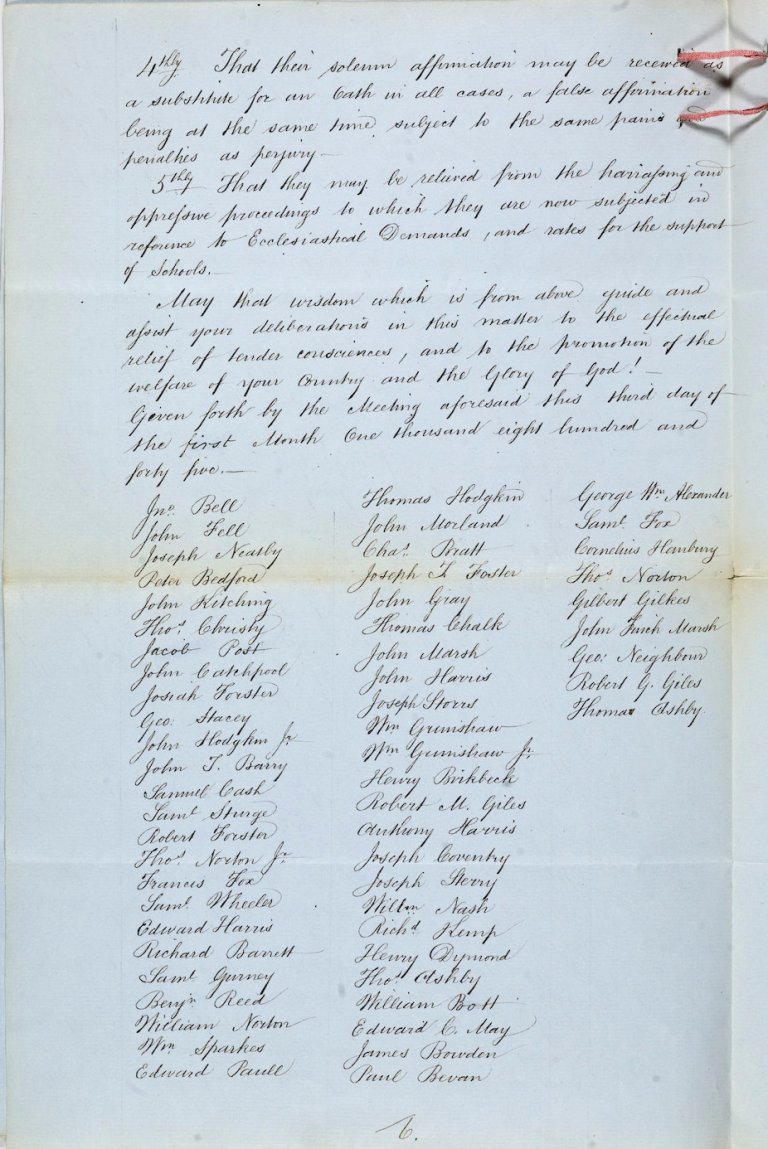 4thly That their solemn affirmation may be received as
a substitute for an Oath in all cases, a false affirmation
being at the same time subject to the same pains and
penalties as perjury—
5thly That they may be relieved from the harrassing and
oppressive proceedings to which they are now subjected in
reference to Ecclesiastical Demands, and rates for the support
of Schools.—
May that wisdom which is from above guide and
assist your deliberations in this matter to the effectual
relief of tender consciences, and to the promotion of the
welfare of your Country and the Glory of God!—
Given forth by the Meeting aforesaid this third day of
the first Month One thousand eight hundred and
forty five.—
Jno. Bell
John Fell
Joseph Neatby
Peter Bedford
John Kitching
Thos. Christy
Jacob Post
John Catchpool
Josiah Forster
Geo: Stacey
John Hodgkin Jr
John T. Barry
Samuel Cash
Saml. Sturge
Robert Forster
Thos. Norton Jr.
Francis Fox
Saml. Wheeler
Edward Harris
Richard Barrett
Saml. Gurney
Benjn. Reed
William Norton
Wm. Sparkes
Edward Paull
Thomas Hodgkin
John Morland
Chas. Pratt
Joseph T. Foster
John Gray
Thomas Chalk
John Marsh
John Harris
Joseph Storrs
Wm Grimshaw
Wm Grimshaw Jr.
Henry Birkbeck
Robert M. Giles
Anthony Harris
Joseph Coventry
Joseph Sterry
Willm. Nash
Richd. Kemp
Henry Dymond
Thos. Ashby
William Bott
Edward C. May
James Bowden
Paul Bevan
George Wm. Alexander
Saml. Fox
Cornelius Hanbury
Thos. Norton
Gilbert Gilkes
John Finch Marsh
Geo: Neighbour
Robert G. Giles
Thomas Ashby.
6.